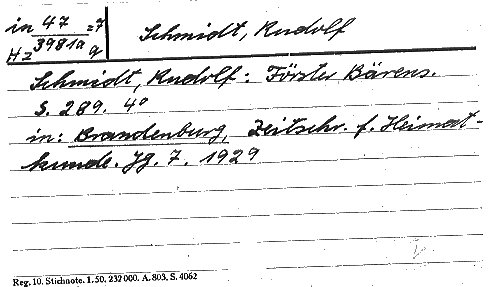 in 47 = 7
Hz 3981a q
Schmidt, Rudolf
Schmidt, Rudolf: Förster Bärens.
S. 289. 4°
in: Brandenburg, Zeitschr. f. Heimat-
kunde. Jg. 7. 1929
Reg. 10. Stichnote. 1. 50. 232000. A. 803. S. 4062